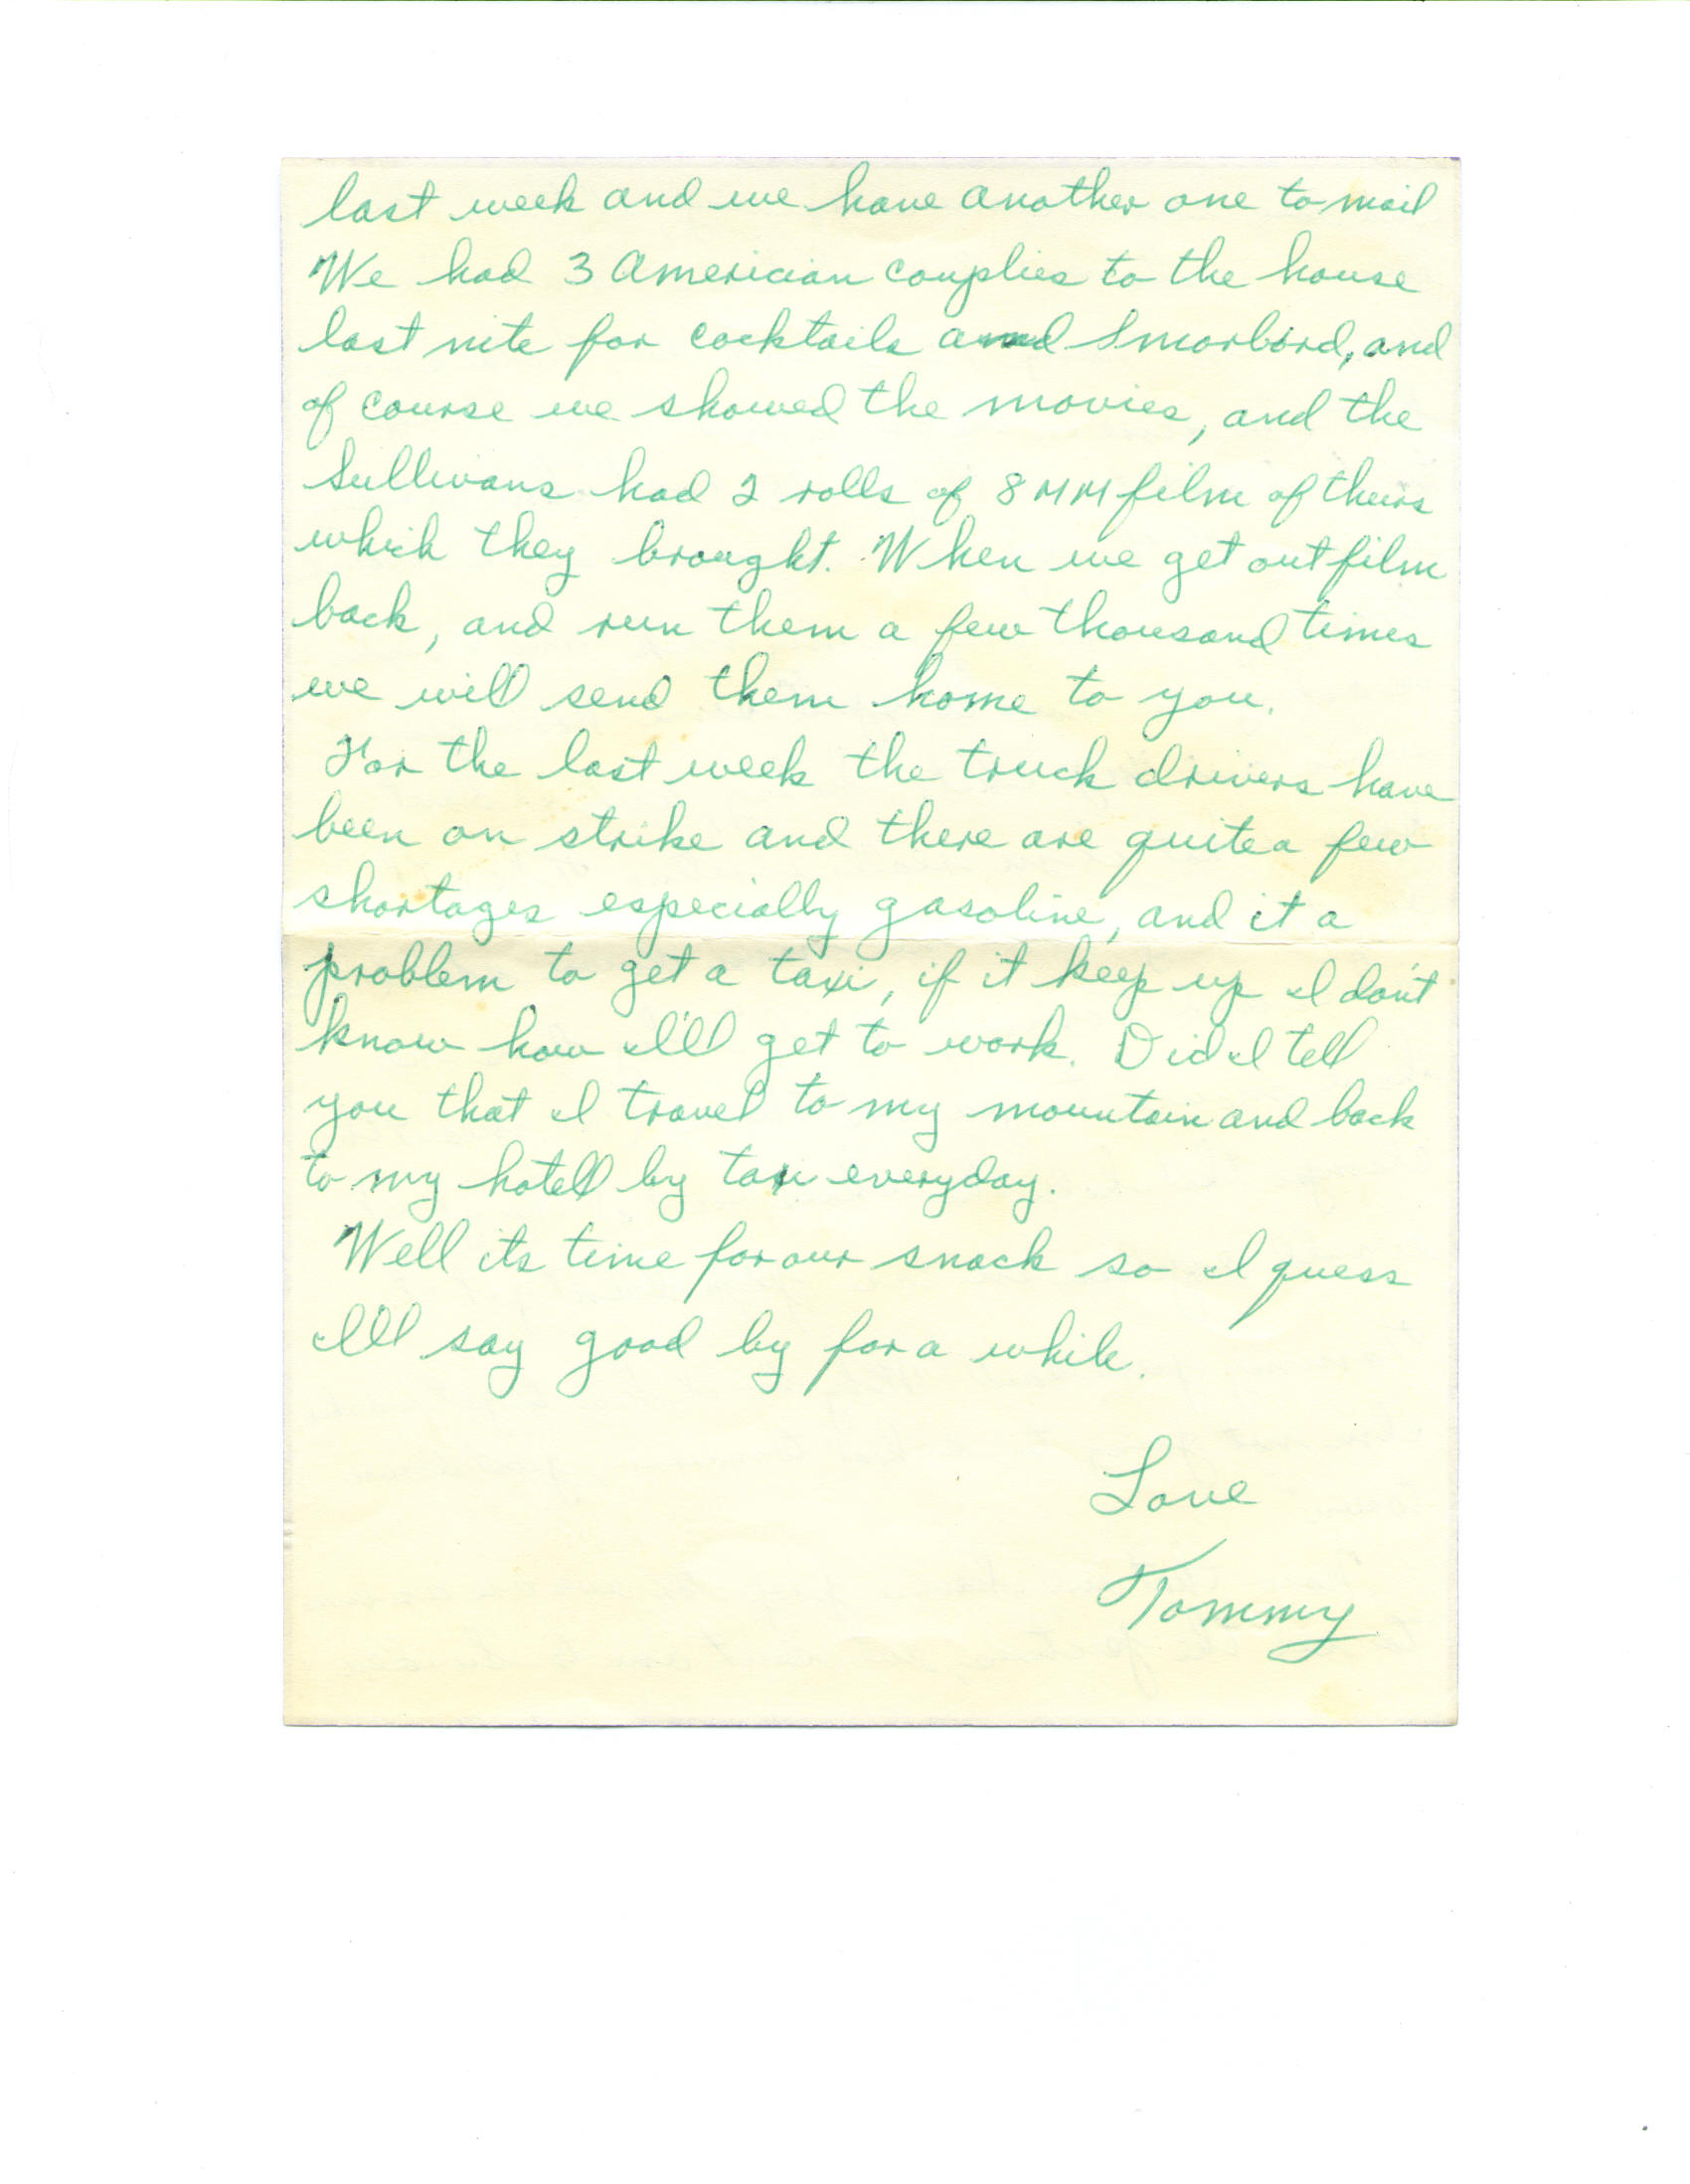 last week and we have another one to mail
We had 3 Americian couplies to the house
last nite for cocktails and Smorbord, and
of course we showed the movies, and the
Sullivans had 2 rolls of 8 MM film of theirs
which they brought. When we get out film
back, and run them a few thousand times
we will send them home to you.
For the last week the truck drivers have
been on strike and there are quite a few
shortages especially gasoline, and it a
problem to get a taxi, if it keep up I don't
know how I'll get to work. Did I tell
you that I travel to my mountain and back
to my hotell by taxi everyday.
Well its time for our snack so I guess
I'll say good by for a while.
Love
Tommy